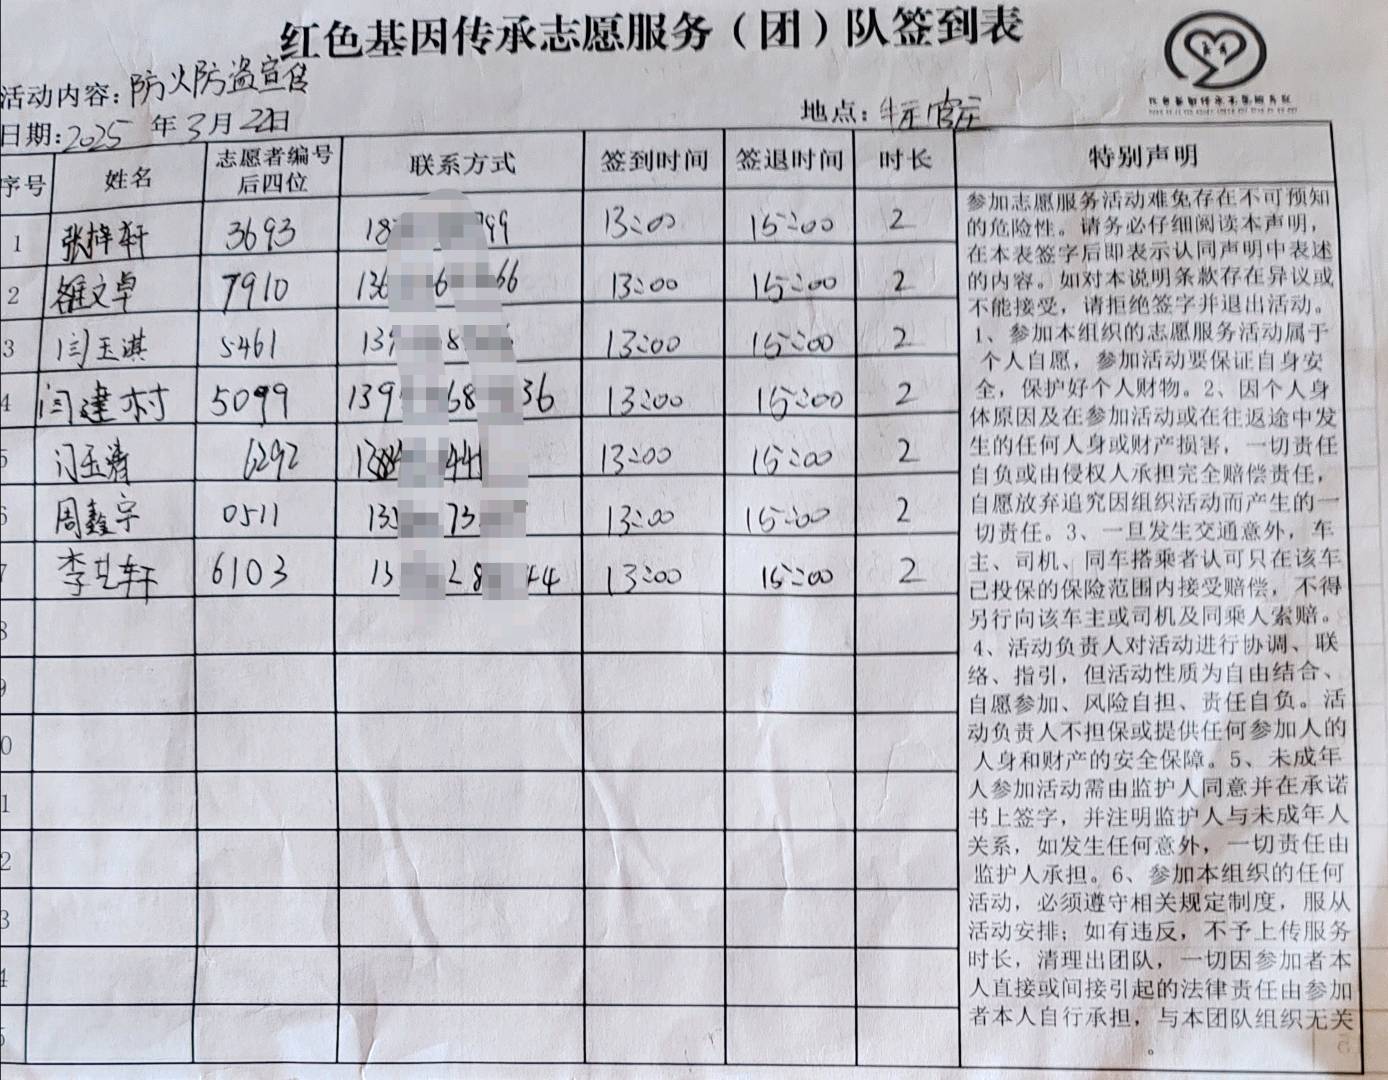 红色基因传承志愿服务（团）队签到表
活动内容：防火防盗宣传
日期：2025年3月22日 地点：
序号 姓名 志愿者编号后四位 联系方式 签到时间 签退时间 时长 特别声明
1 张梓轩 3693 18 99 13:00 15:00 2
2 文卓 7910 136 6 66 13:00 15:00 2
3 闫玉淇 5461 139 8 13:00 15:00 2
4 闫建村 5099 139 68 36 13:00 15:00 2
5 闫玉清 6292 138 44 13:00 15:00 2
6 周鑫宇 0511 135 73 13:00 15:00 2
7 李艺轩 6103 13 28 44 13:00 15:00 2
8
9
0
1
2
3
4
5
参加志愿服务活动难免存在不可预知
的危险性。请务必仔细阅读本声明，
在本表签字后即表示认同声明中表述
的内容。如对本说明条款存在异议或
不能接受，请拒绝签字并退出活动。
1、参加本组织的志愿服务活动属于
个人自愿，参加活动要保证自身安
全，保护好个人财物。2、因个人身
体原因及在参加活动或在往返途中发
生的任何人身或财产损害，一切责任
自负或由侵权人承担完全赔偿责任，
自愿放弃追究因组织活动而产生的一
切责任。3、一旦发生交通意外，车
主、司机、同车搭乘者认可只在该车
已投保的保险范围内接受赔偿，不得
另行向该车主或司机及同乘人索赔。
4、活动负责人对活动进行协调、联
络、指引，但活动性质为自由结合、
自愿参加、风险自担、责任自负。活
动负责人不担保或提供任何参加人的
人身和财产的安全保障。5、未成年
人参加活动需由监护人同意并在承诺
书上签字，并注明监护人与未成年人
关系，如发生任何意外，一切责任由
监护人承担。6、参加本组织的任何
活动，必须遵守相关规定制度，服从
活动安排；如有违反，不予上传服务
时长，清理出团队，一切因参加者本
人直接或间接引起的法律责任由参加
者本人自行承担，与本团队组织无关
。